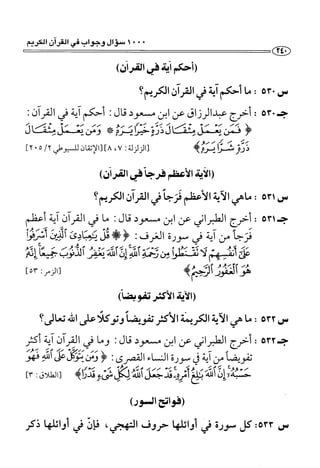 ١٠٠٠ سؤال وجواب في القرآن الكريم
٢٤٠
(أحكم آية في القرآن)
س ٥٣٠ : ما أحكم آية في القرآن الكريم؟
جـ ٥٣٠ : أخرج عبدالرزاق عن ابن مسعود قال: أحكم آية في القرآن:
﴿ فَمَن يَعْمَلْ مِثْقَالَ ذَرَّةٍ خَيْرًا يَرَهُ * وَمَن يَعْمَلْ مِثْقَالَ
ذَرَّةٍ شَرًّا يَرَهُ ﴾ [الزلزلة: ٧، ٨] [الإتقان للسيوطي ٢/ ٢٠٥]
(الآية الأعظم فرجاً في القرآن)
س ٥٣١ : ماهي الآية الأعظم فَرَجاً في القرآن الكريم؟
جـ ٥٣١ : أخرج الطبراني عن ابن مسعود قال: ما في القرآن آية أعظم
فرَجاً من آية في سورة الغرف: ﴿ ۞ قُلْ يَٰعِبَادِيَ الَّذِينَ أَسْرَفُوا
عَلَىٰ أَنفُسِهِمْ لَا تَقْنَطُوا مِن رَّحْمَةِ اللَّهِ إِنَّ اللَّهَ يَغْفِرُ الذُّنُوبَ جَمِيعًا إِنَّهُ
هُوَ الْغَفُورُ الرَّحِيمُ ﴾ [الزمر: ٥٣]
(الآية الأكثر تفويضاً)
س ٥٣٢ : ما هي الآية الكريمة الأكثر تفويضاً وتوكلاً على الله تعالى؟
جـ ٥٣٢ : أخرج الطبراني عن ابن مسعود قال: وما في القرآن آية أكثر
تفويضاً من آية في سورة النساء القصرى: ﴿ وَمَن يَتَوَكَّلْ عَلَى اللَّهِ فَهُوَ
حَسْبُهُ إِنَّ اللَّهَ بَالِغُ أَمْرِهِ قَدْ جَعَلَ اللَّهُ لِكُلِّ شَيْءٍ قَدْرًا ﴾ [الطلاق: ٣]
(فواتح السور)
س ٥٣٣: كل سورة في أوائلها حروف التهجي، فإنّ في أوائلها ذكر